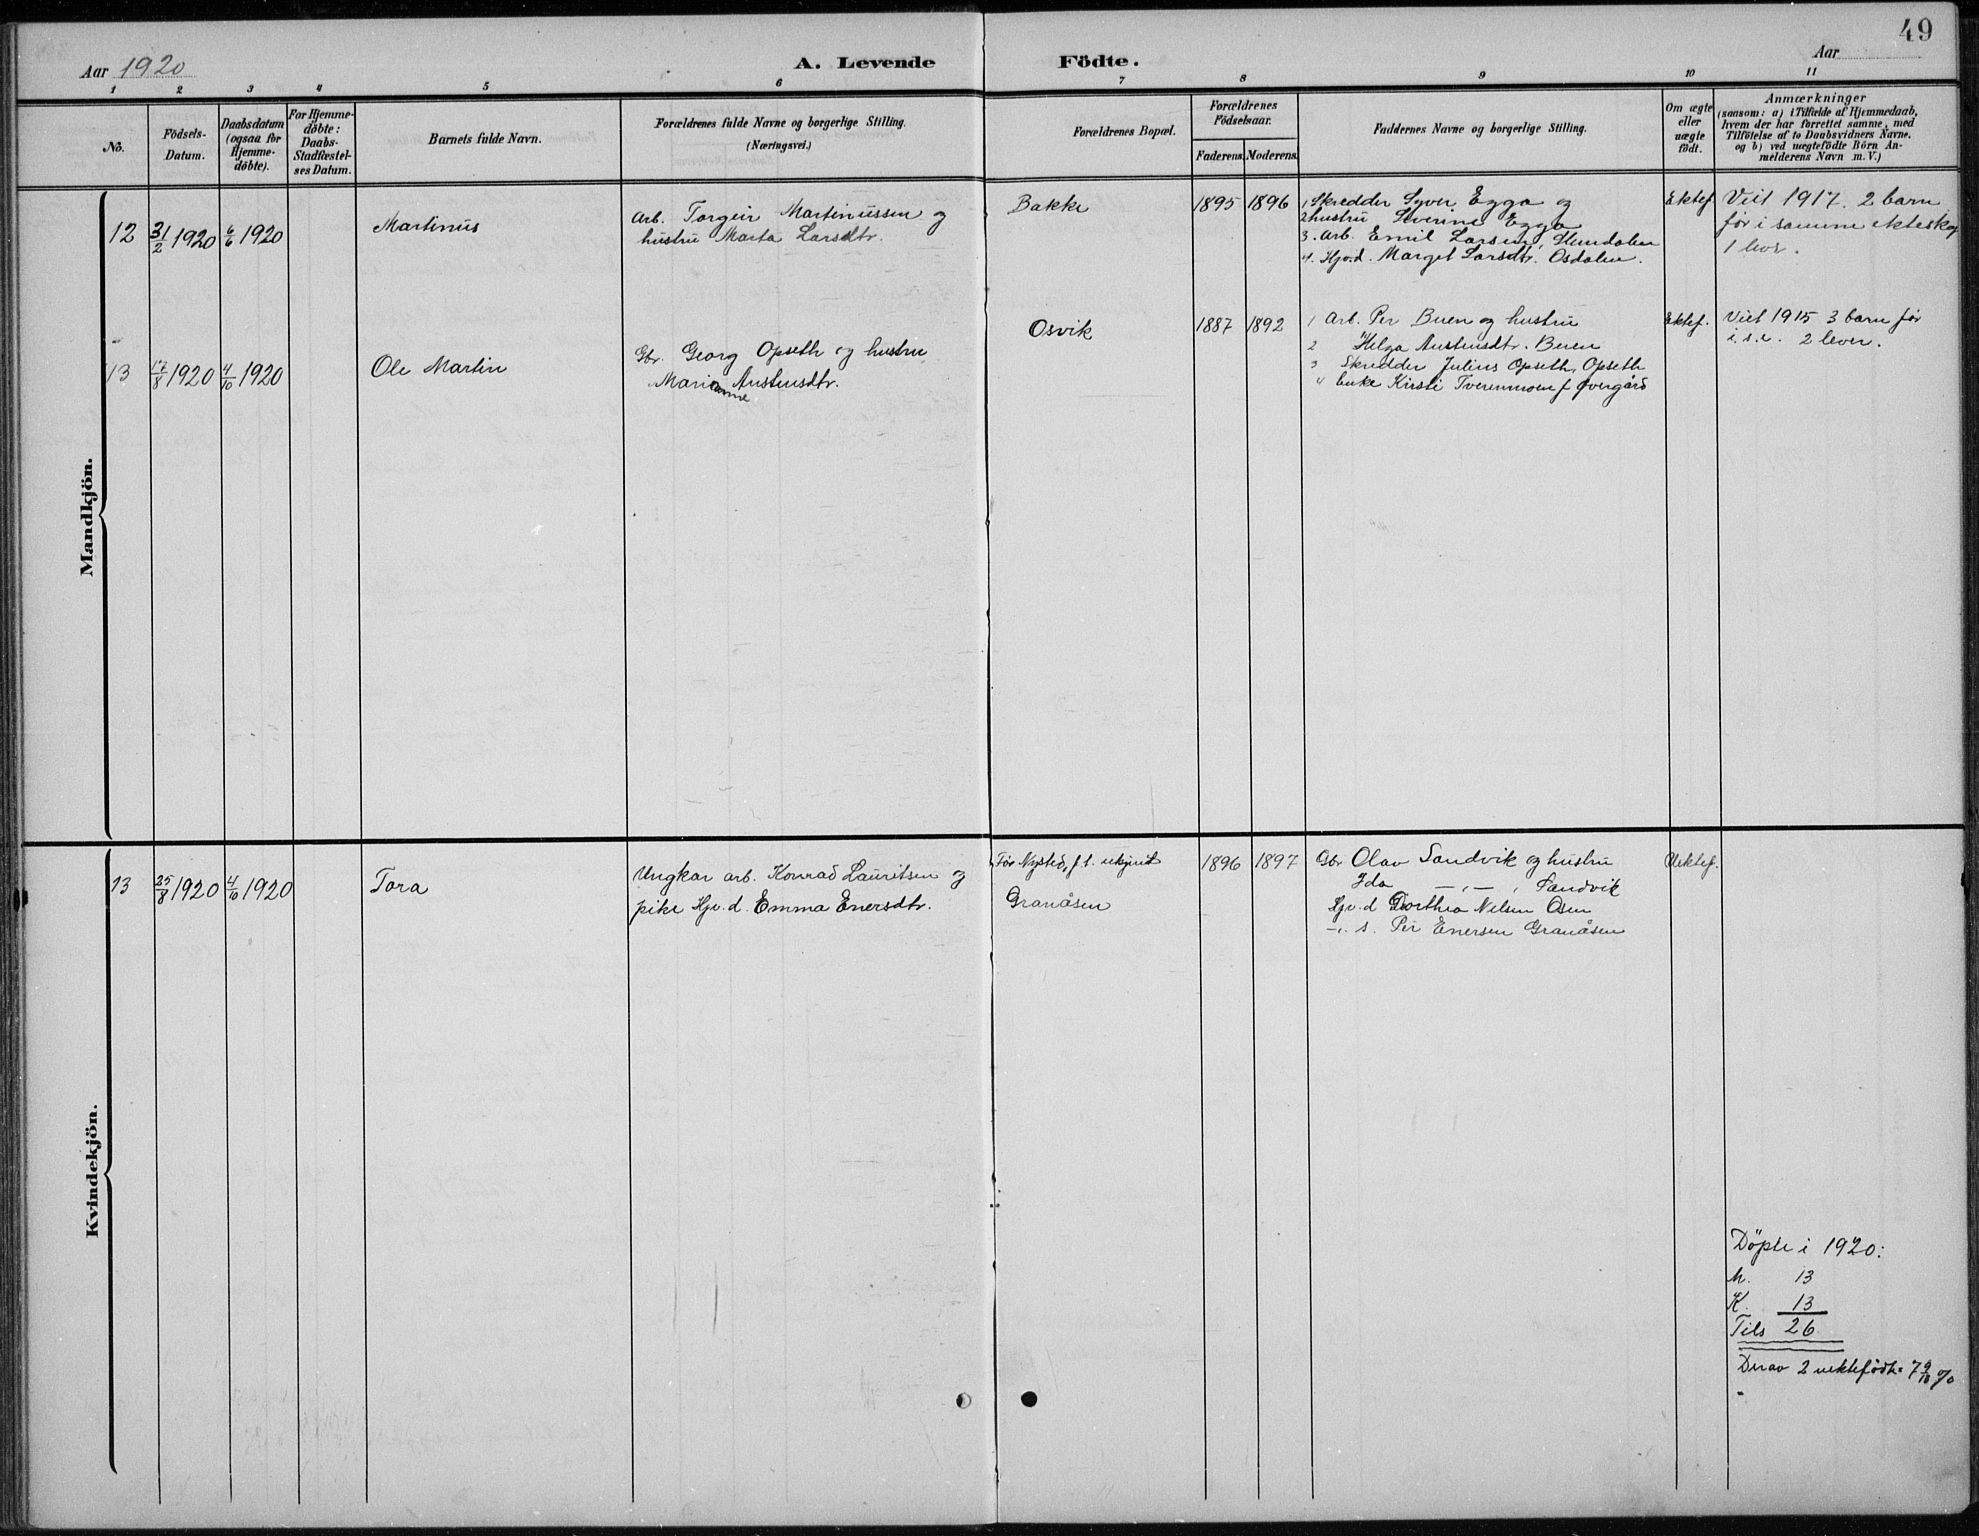 49
Aar 1920
A. Levende
Födte.
Aar
1 2 3 4 5 6 7 8 9 10 11
No.
Födsels-
Datum.
Daabsdatum
(ogsaa for
Hjemme-
döbte).
For Hjemme-
döbte:
Daabs-
Stadfæstel-
ses Datum.
Barnets fulde Navn.
Forældrenes fulde Navne og borgerlige Stilling.
(Næringsvei.)
Forældrenes Bopæl.
Forældrenes
Födselsaar.
Faderens. Moderens.
Faddernes Navne og borgerlige Stilling.
Om ægte
eller
uægte
födt.
Anmærkninger
(saasom: a) i Tilfælde af Hjemmedaab,
hvem der har forrettet samme, med
Tilföielse af to Daabsvidners Navne,
og b) ved uægtefödte Börn An-
melderens Navn m. V.)
Mandkjön.
12 31/2 1920 6/6 1920
Martinus
Arb. Torgeir Martinussen og
hustru Marta Larsdtr.
Bakke
1895 1896
1 Skredder Syver Egga og
2 hustru Severine Egga
3. Arb. Emil Larsen,
4. Hjv.d. Marget Larsdtr. Osdalen.
Ektef
Viet 1917. 2 barn
før i samme ektesk
1 lever.
13 17/8 1920 4/10 1920
Ole Martin
Gbr. Georg Opseth og hustru
Marianne Austinsdtr.
Osvik
1887 1892
1 Arb. Per Buen og hustru
2 Helga Austinsdtr. Buen
3 Skredder Julius Opseth, Opseth
4 Enke Kirsti Tverenmoen f Øvergård
Ektef.
Viet 1915 3 barn før
i. s. e. 2 lever.
Kvindekjön.
13 25/8 1920 4/10 1920
Tora
Ungkar arb. Konrad Lauritsen og
pike Hjv. d. Emma Enersdtr.
Før Nysted, f. t. ukjent
Granåsen
1896 1897
Gbr Olav Sandvik og hustru
Ida —"—, Sandvik
Hjv. d Dorthea Nilsen Osen
—"— s. Per Enersen Granåsen
Uektef.
Döpte i 1920:
M. 13
K. 13
Tils 26
Derav 2 uektefødte = 7 9/10 %